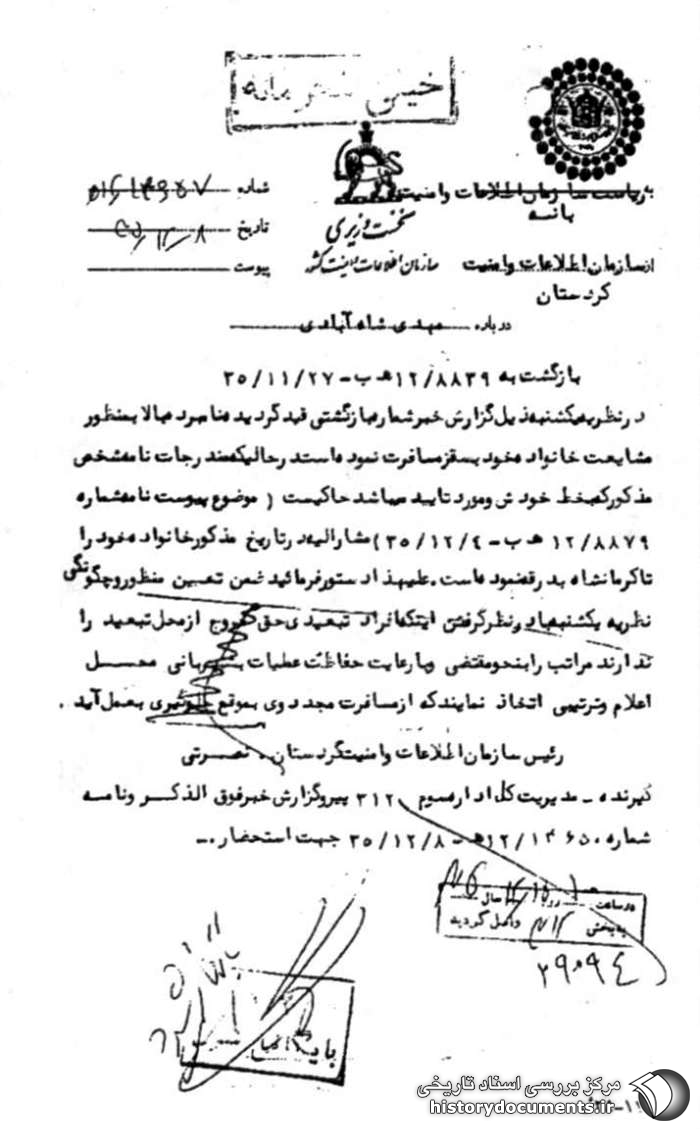 خیلی محرمانه
به ریاست سازمان اطلاعات و امنیت
بانه
شماره
نخست وزیری
تاریخ ۳۵/۱۲/۸
سازمان اطلاعات و امنیت کشور
پیوست
از سازمان اطلاعات و امنیت
کردستان
درباره مهدی شاه آبادی
بازگشت به ۱۲/۸۸۳۹ هـ ب – ۳۵/۱۱/۲۷
در نظریه یکشنبه ذیل گزارش خبر شماره بازگشتی قید گردیده نامبرده بالا بمنظور
مشایعت خانواده خود بسقز مسافرت نموده است در حالیکه مندرجات نامه شخص
مذکور که بخط خودش و مورد تایید میباشد حاکیست ( موضوع پیوست نامه شماره
۱۲/۸۸۷۹ هـ ب – ۳۵/۱۲/۴) مشارالیه در تاریخ مذکور خانواده خود را
تا کرمانشاه بدرقه نموده است. علیهذا دستور فرمائید ضمن تعیین منظور و چگونگی
نظریه یکشنبه با در نظر گرفتن اینکه افراد تبعیدی حق خروج از محل تبعید را
ندارند مراتب را بنحو مقتضی و با رعایت حفاظت عملیات بشهربانی محل
اعلام و ترتیبی اتخاذ نمایند که از مسافرت مجدد وی بموقع جلوگیری بعمل آید .
رئیس سازمان اطلاعات و امنیت کردستان . نصرتی
گیرنده – مدیریت کل اداره سوم ۳۱۲ پیرو گزارش خبر فوق الذکر و نامه
شماره ۱۲/۱۴۶۵۰ هـ – ۳۵/۱۲/۸ جهت استحضار .–
در ساعت روز سال
به بخش ۳۱۲ واصل گردید
۲۹۰۹۴
مرکز بررسی اسناد تاریخی
historydocuments.ir